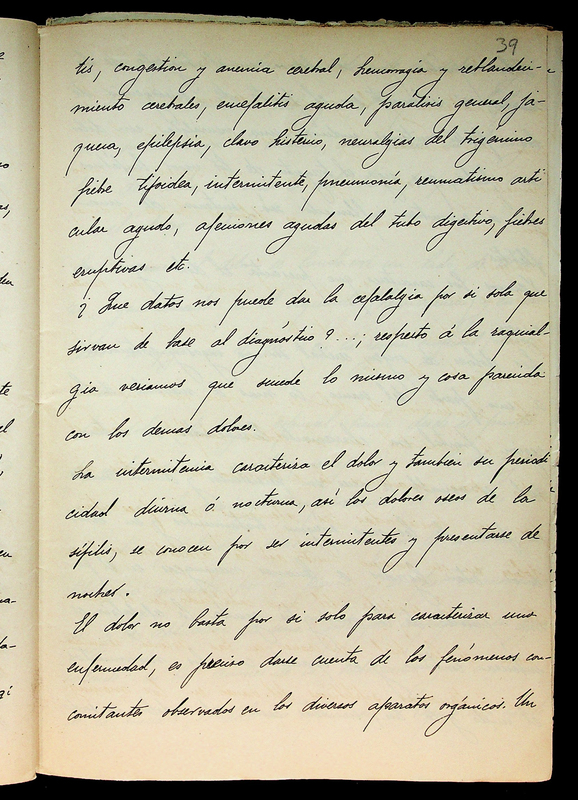 39
tis, congestion y anemia cerebral, hemorragia y reblandeci-
miento cerebrales, encefalitis aguda, paralisis general, ja-
queca, epilepsia, clavo histerico, neuralgias del trigemino
fiebre tifoidea, intermitente, pneumonía, reumatismo arti
cular agudo, afecciones agudas del tubo digestivo, fiebres
eruptivas etc.
¿ Que datos nos puede dar la cefalalgia por si sola que
sirvan de base al diagnóstico ? ...; respecto á la raquial-
gia veriamos que sucede lo mismo y cosa parecida
con los demas dolores.
La intermitencia caracteriza el dolor y tambien su periodi
cidad diurna ó nocturna, así los dolores oseos de la
sífilis, se conocen por ser intermitentes y presentarse de
noches.
El dolor no basta por si solo para caracterizar una
enfermedad, es preciso darse cuenta de los fenómenos con-
comitantes observados en los diversos aparatos orgánicos. Un